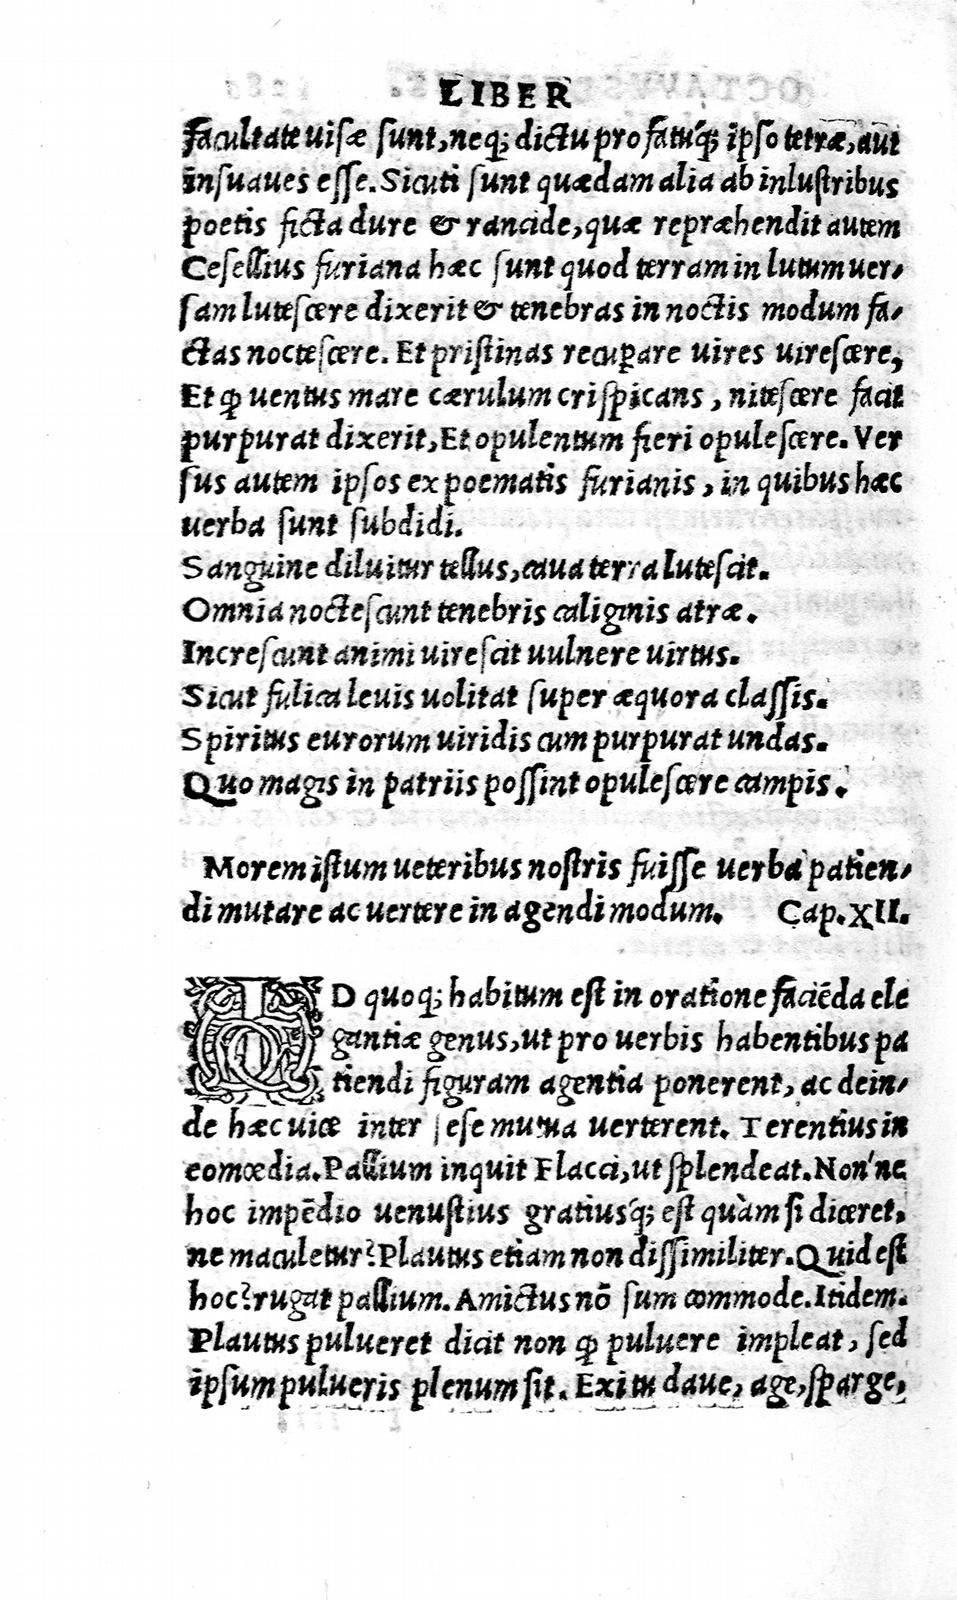 LIBER
facultate uisæ sunt, neq; dictu pro fatúq; ipso tetræ, aut
insuaues esse. Sicuti sunt quædam alia ab inlustribus
poetis ficta dure & rancide, quæ repræhendit autem
Cesellius furiana hæc sunt quod terram in lutum uer-
sam lutescere dixerit & tenebras in noctis modum fa-
ctas noctescere. Et pristinas recuꝑare uires uirescere,
Et ꝙ uentus mare cærulum crispicans, nitescere facit
purpurat dixerit, Et opulentum fieri opulescere. Ver
sus autem ipsos ex poematis furianis, in quibus hæc
uerba sunt subdidi.
Sanguine diluitur tellus, caua terra lutescit.
Omnia noctescunt tenebris caliginis atræ.
Increscunt animi uirescit uulnere uirtus.
Sicut fulica leuis uolitat super æquora classis.
Spiritus eurorum uiridis cum purpurat undas.
Quo magis in patriis possint opulescere campis.
Morem istum ueteribus nostris fuisse uerba patien-
di mutare ac uertere in agendi modum. Cap. XII.
ID quoq; habitum est in oratione faciēda ele
gantiæ genus, ut pro uerbis habentibus pa
tiendi figuram agentia ponerent, ac dein-
de hæc uice inter sese mutua uerterent. Terentius in
comœdia. Pallium inquit Flacci, ut splendeat. Non'ne
hoc impēdio uenustius gratiusq́; est quàm si diceret,
ne maculetur? Plautus etiam non dissimiliter. Quid est
hoc? rugat pallium. Amictus nō sum commode. Itidem.
Plautus pulueret dicit non ꝙ puluere impleat, sed
ipsum pulueris plenum sit. Exi tu daue, age, sparge,